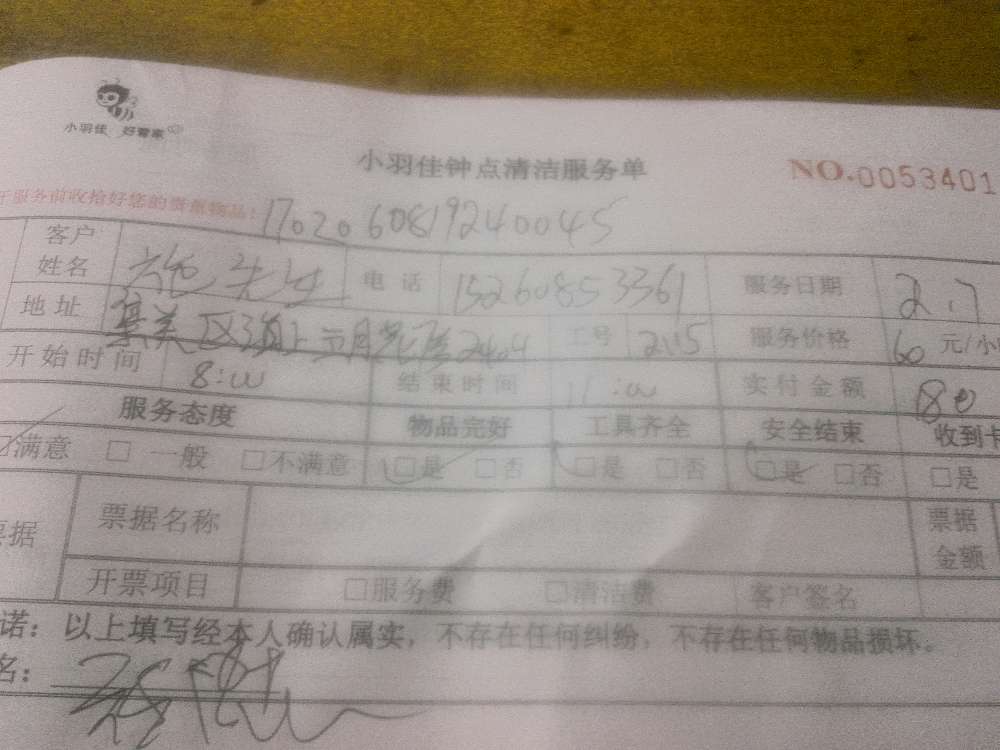 小羽佳 好管家
小羽佳钟点清洁服务单
NO.0053401
服务前收拾好您的贵重物品！ 17020608192400045
客户姓名 施先生 电话 15260853361 服务日期 2.7
地址 集美区 2404 工号 2115 服务价格 60 元/小
开始时间 8:00 结束时间 11:00 实付金额 180
服务态度 物品完好 工具齐全 安全结束 收到卡
□满意 □一般 □不满意 □是 □否 □是 □否 □是 □否 □是
票据 票据名称 票据金额
开票项目 □服务费 □清洁费 客户签名
诺：以上填写经本人确认属实，不存在任何纠纷，不存在任何物品损坏。
名：